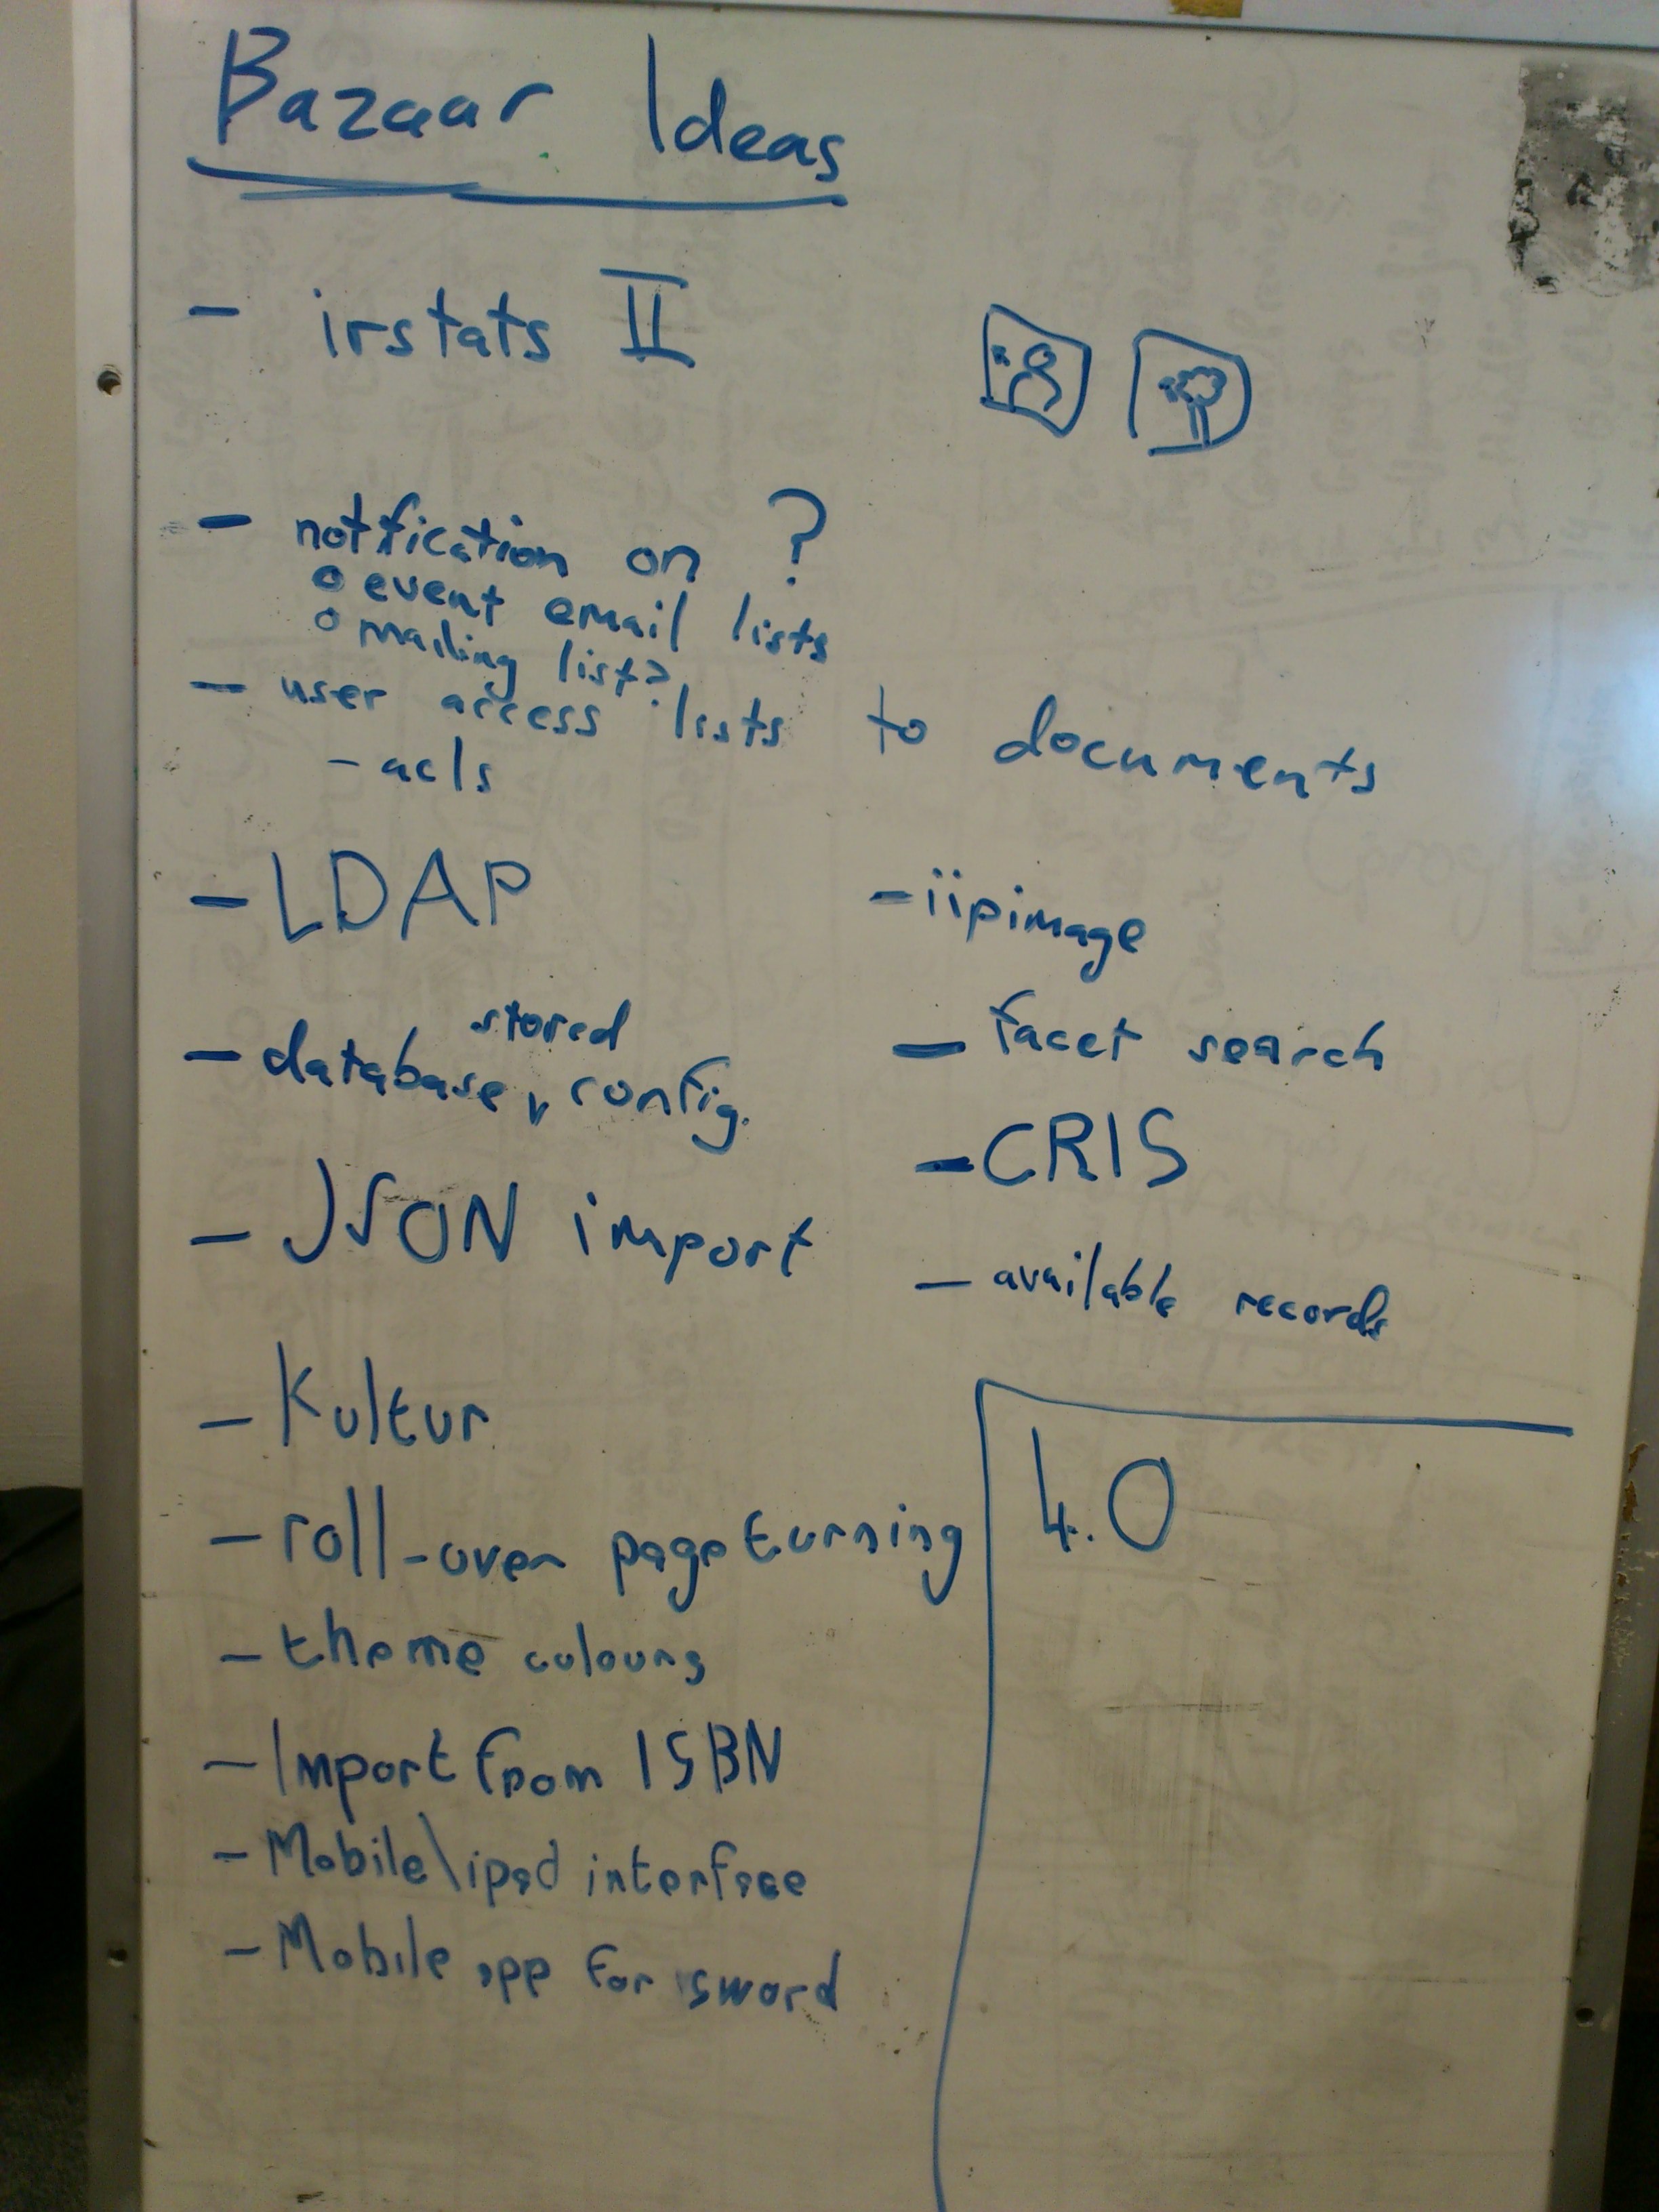 Bazaar Ideas
- irstats II
- notification on ?
o event email lists
o mailing list?
- user access lists to documents
- acls
- LDAP
- database stored config.
- JSON import
- Kultur
- roll-over page turning
- theme colours
- Import from ISBN
- Mobile\ipad interface
- Mobile app for sword
- iipimage
- facet search
- CRIS
- available records
4.0